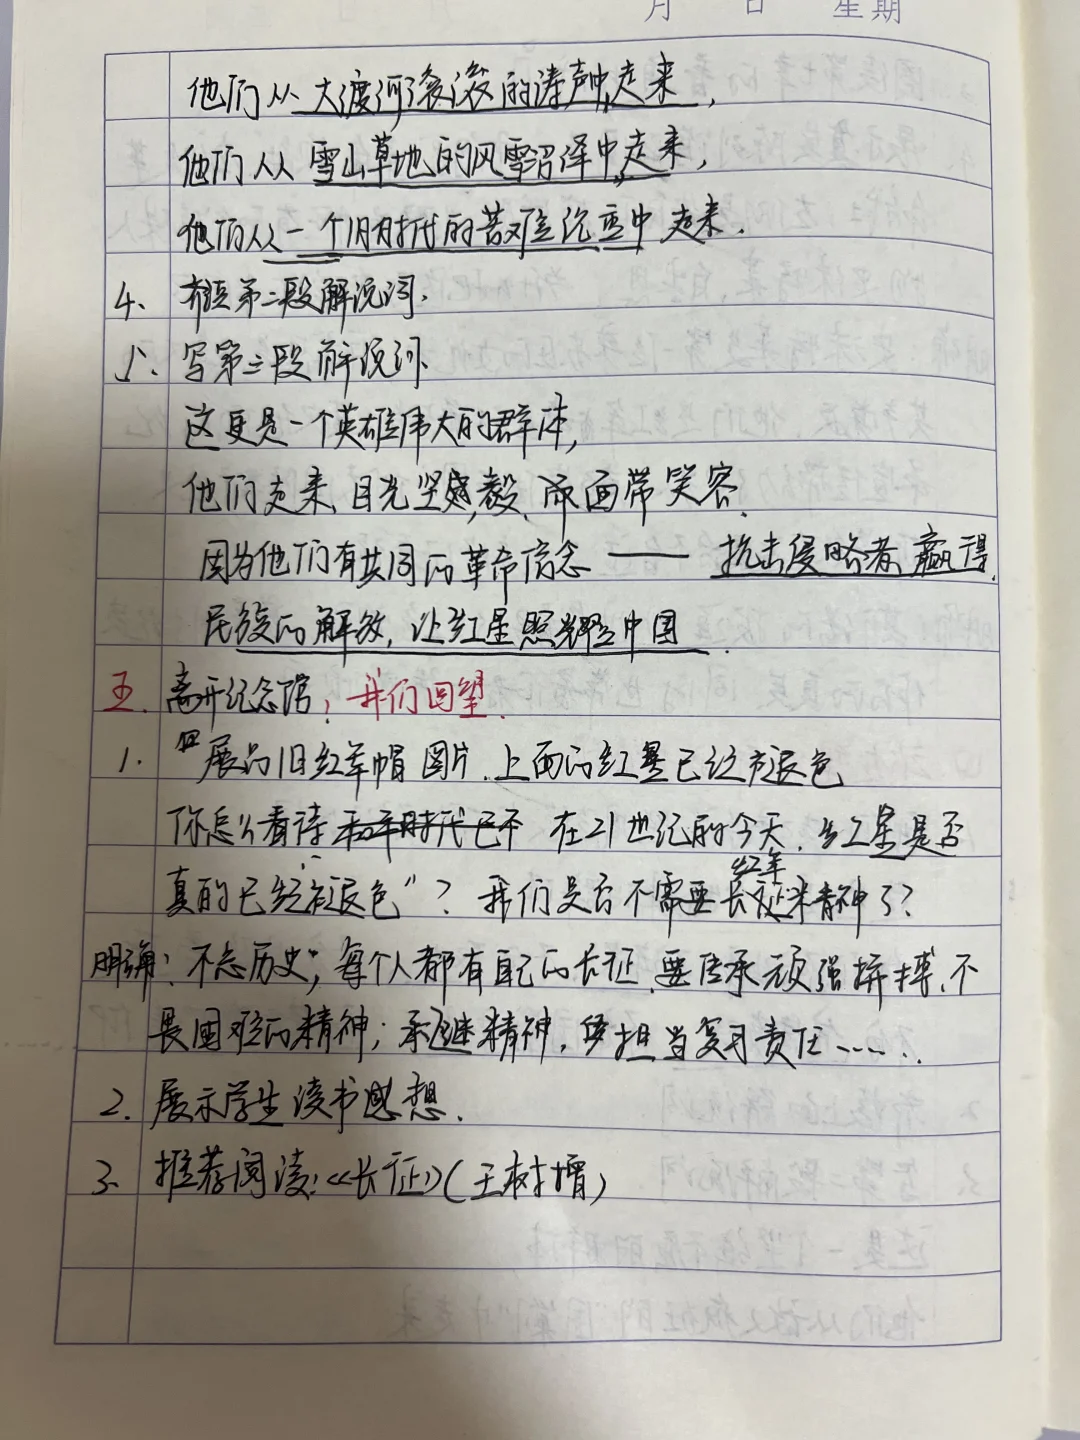 月 日 星期
他们从大渡河滚滚的涛声中走来，
他们从雪山草地的风雪沼泽中走来，
他们从一个旧时代的苦难沉重中走来．
4、 第二段解说词．
5、 写第三段解说词．
这更是一个英雄伟大的群体，
他们走来，目光坚毅，而面带笑容．
因为他们有共同的革命信念——抗击侵略者，赢得
民族的解放，让红星照耀中国．
五．离开纪念馆，我们回望．
1．展品旧红军帽图片．上面的红星已经褪色
你怎么看待 在21世纪的今天，红星是否
真的已经褪色"？我们是否不需要红军长征精神了？
明确：不忘历史；每个人都有自己的长征，要传承顽强拼搏、不
畏困难的精神；承继精神，担当复习责任……．
2．展示学生读书感想．
3、推荐阅读：《长征》（王树增）